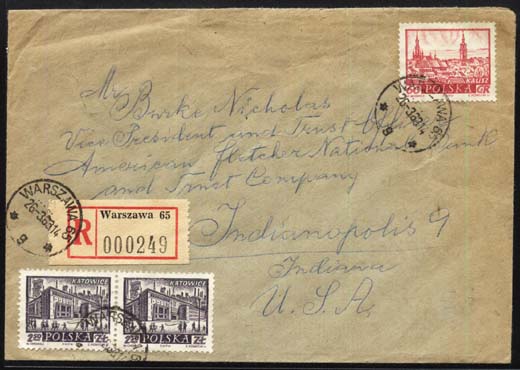 KALISZ
60 POLSKA GR
WARSZAWA 65
Mr
Burke Nicholas
Vice President and Trust
American Fletcher National Bank
and Trust Company
Indianapolis 9
Indiana
U.S.A.
WARSZAWA 65
R
Warszawa 65
000249
KATOWICE KATOWICE
2.50 POLSKA ZŁ 2.50 POLSKA ZŁ
WARSZAWA 65